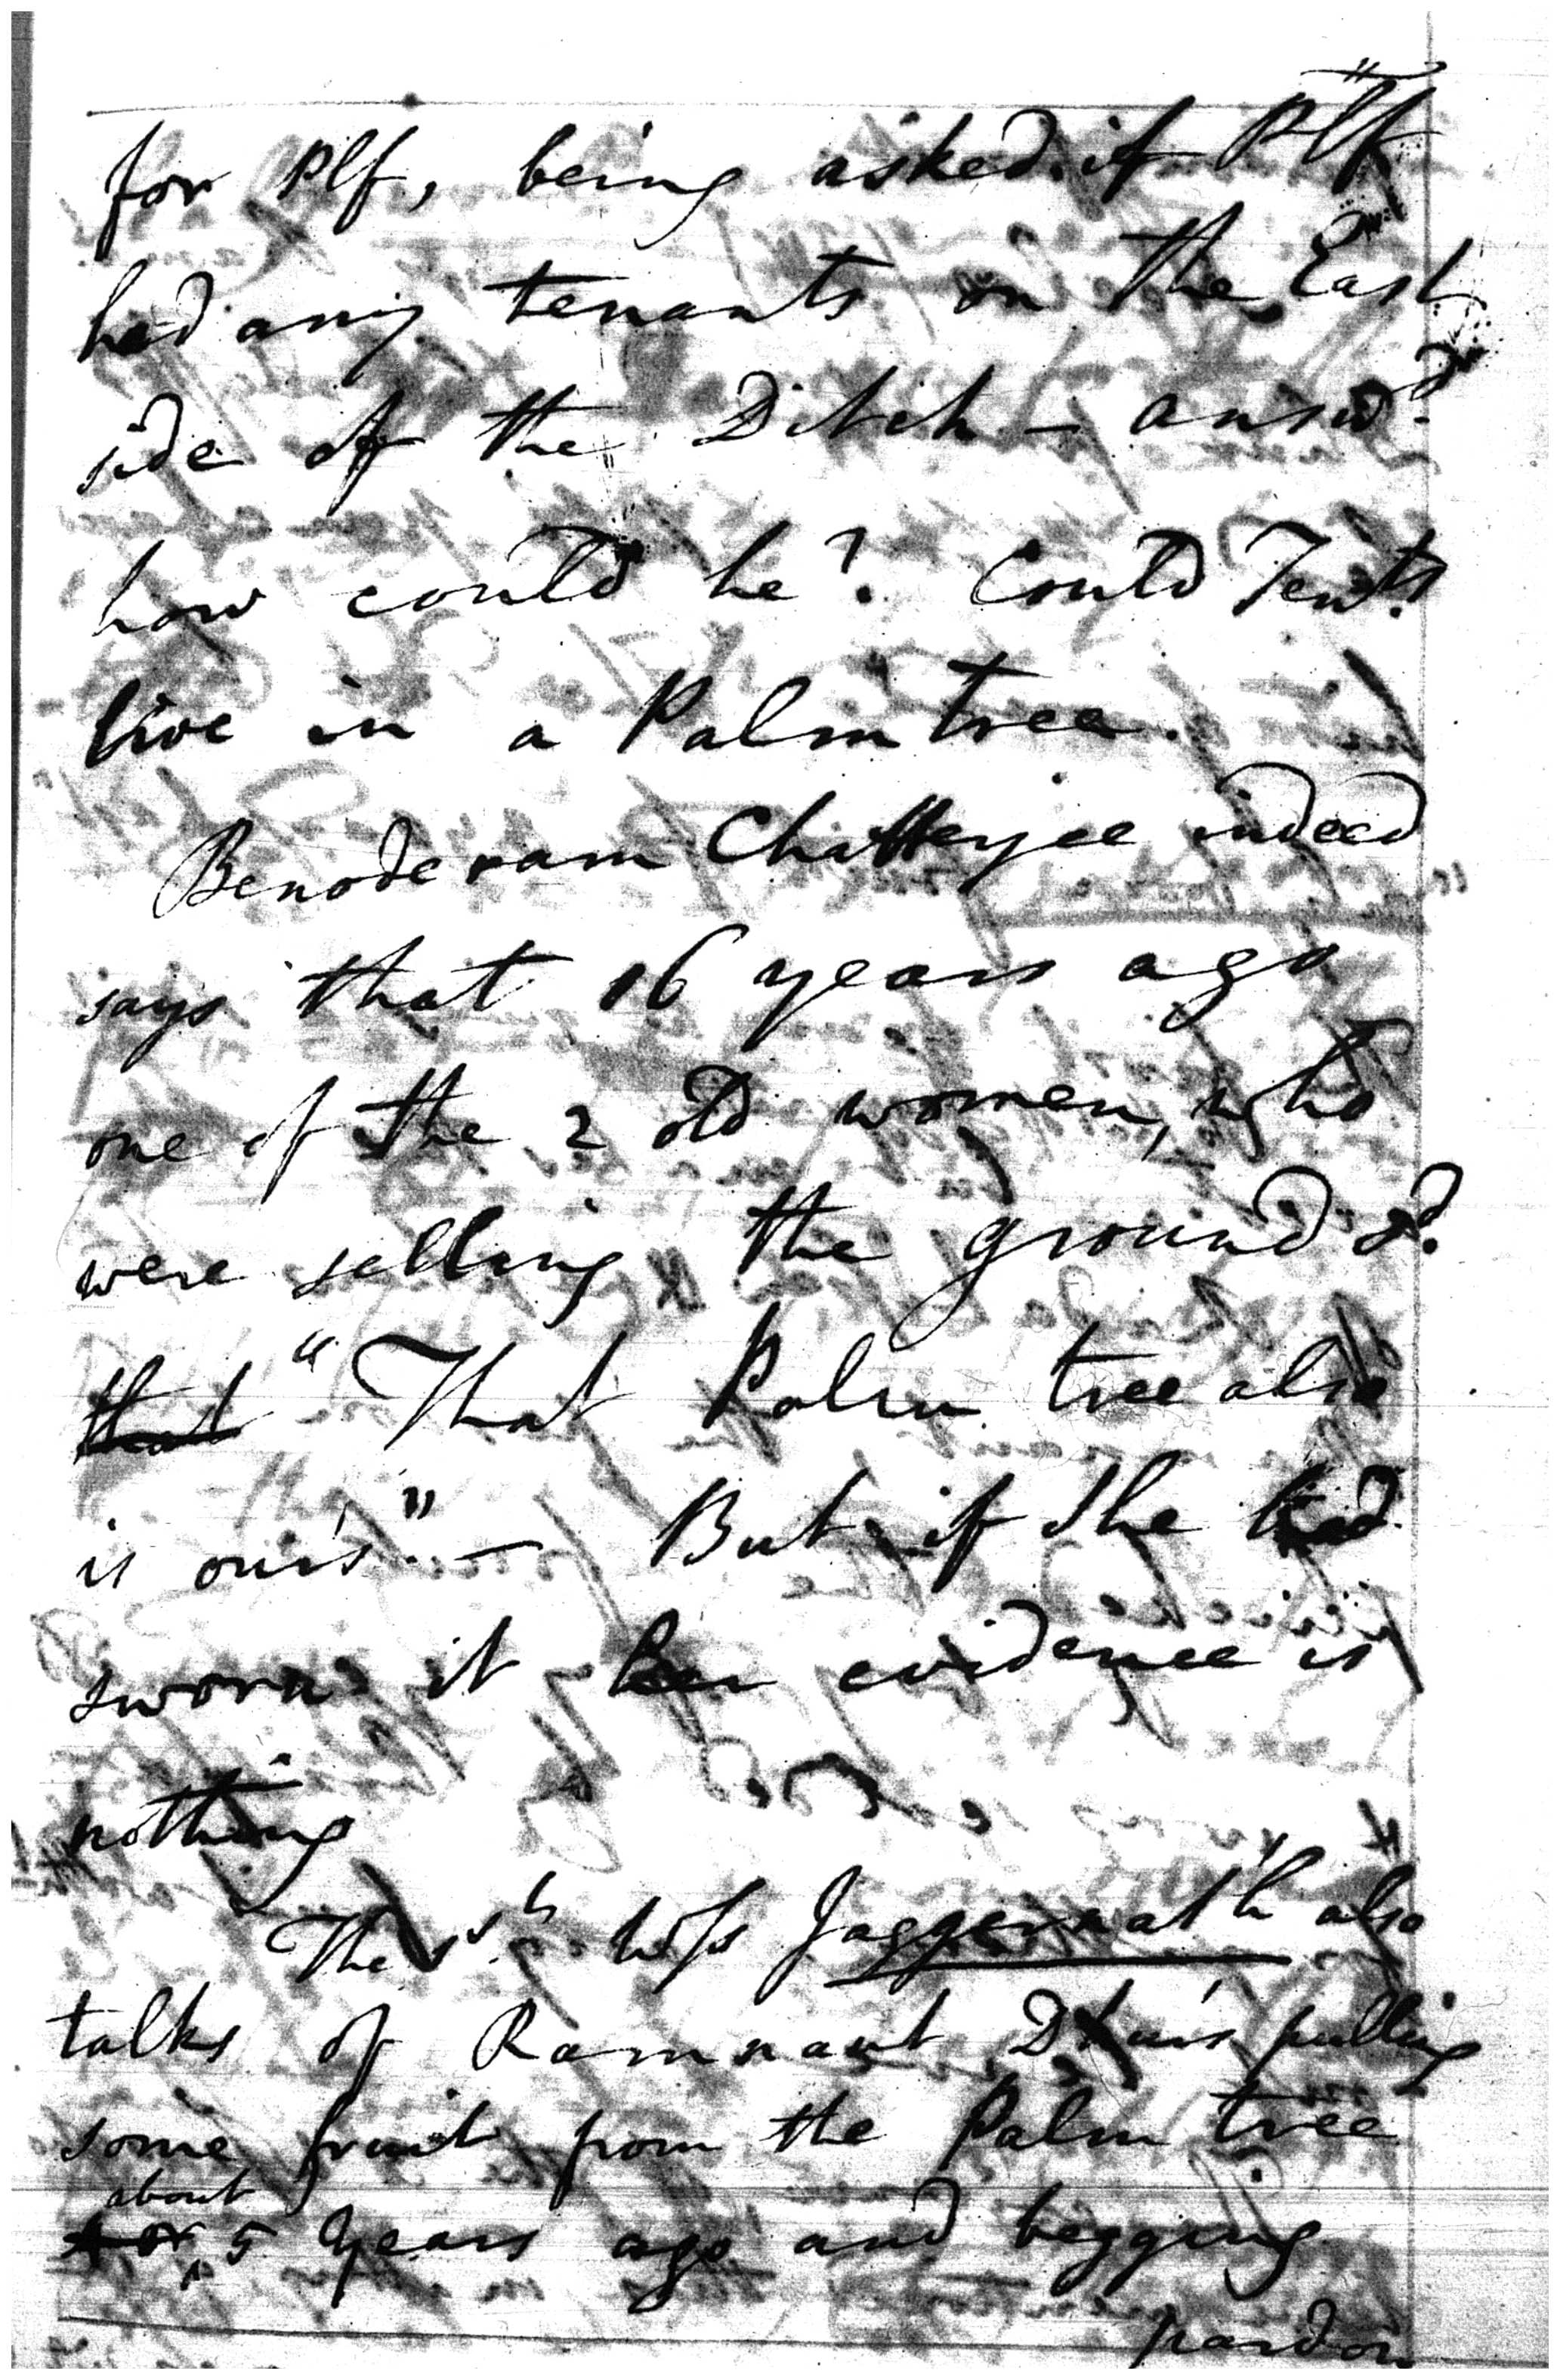 for Plf, being asked if Plf
had any tenants on the East
side of the Ditch — answd.
how could he? Could Tents.
live in a Palm tree.
Benoderam Chatterjee indeed
says that 16 years ago
one of the 2 old women, who
were selling the ground sd.
that "That Palm tree also
is ours". — But if she had
sworn it her evidence is
nothing
The 5th. Wiſs Jaggernath also
talks of Ramnaut pulling
some fruit from the Palm tree
4 or about 5 years ago and begging
pardon